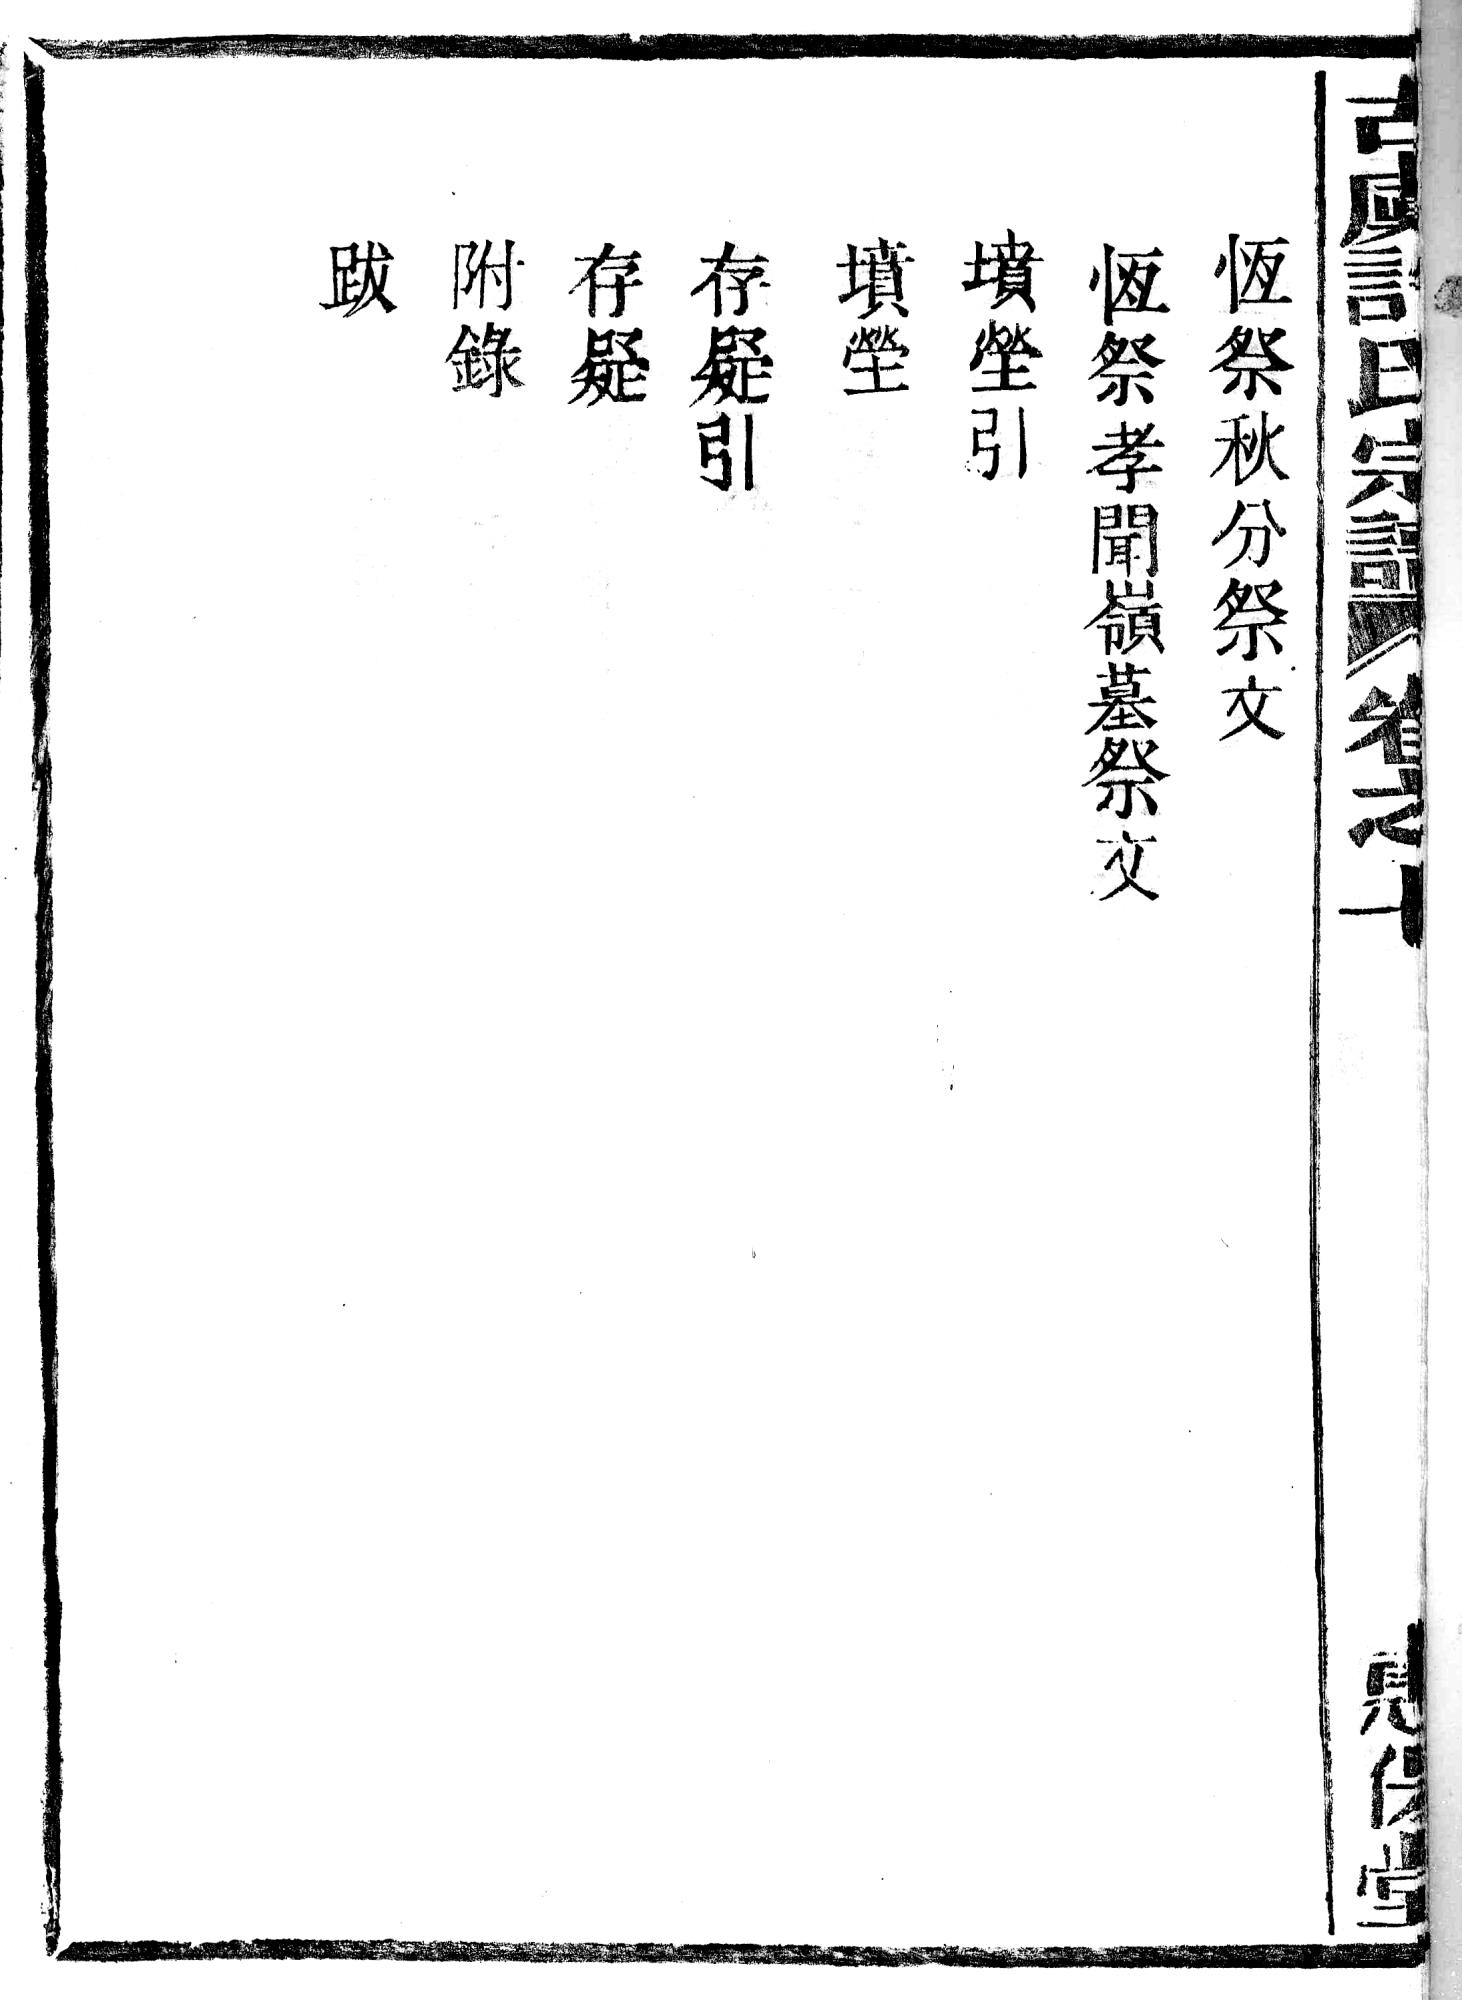 古虞許氏宗譜 卷之十
恆祭秋分祭文
恆祭孝聞嶺墓祭文
墳塋引
墳塋
存疑引
存疑
附錄
跋